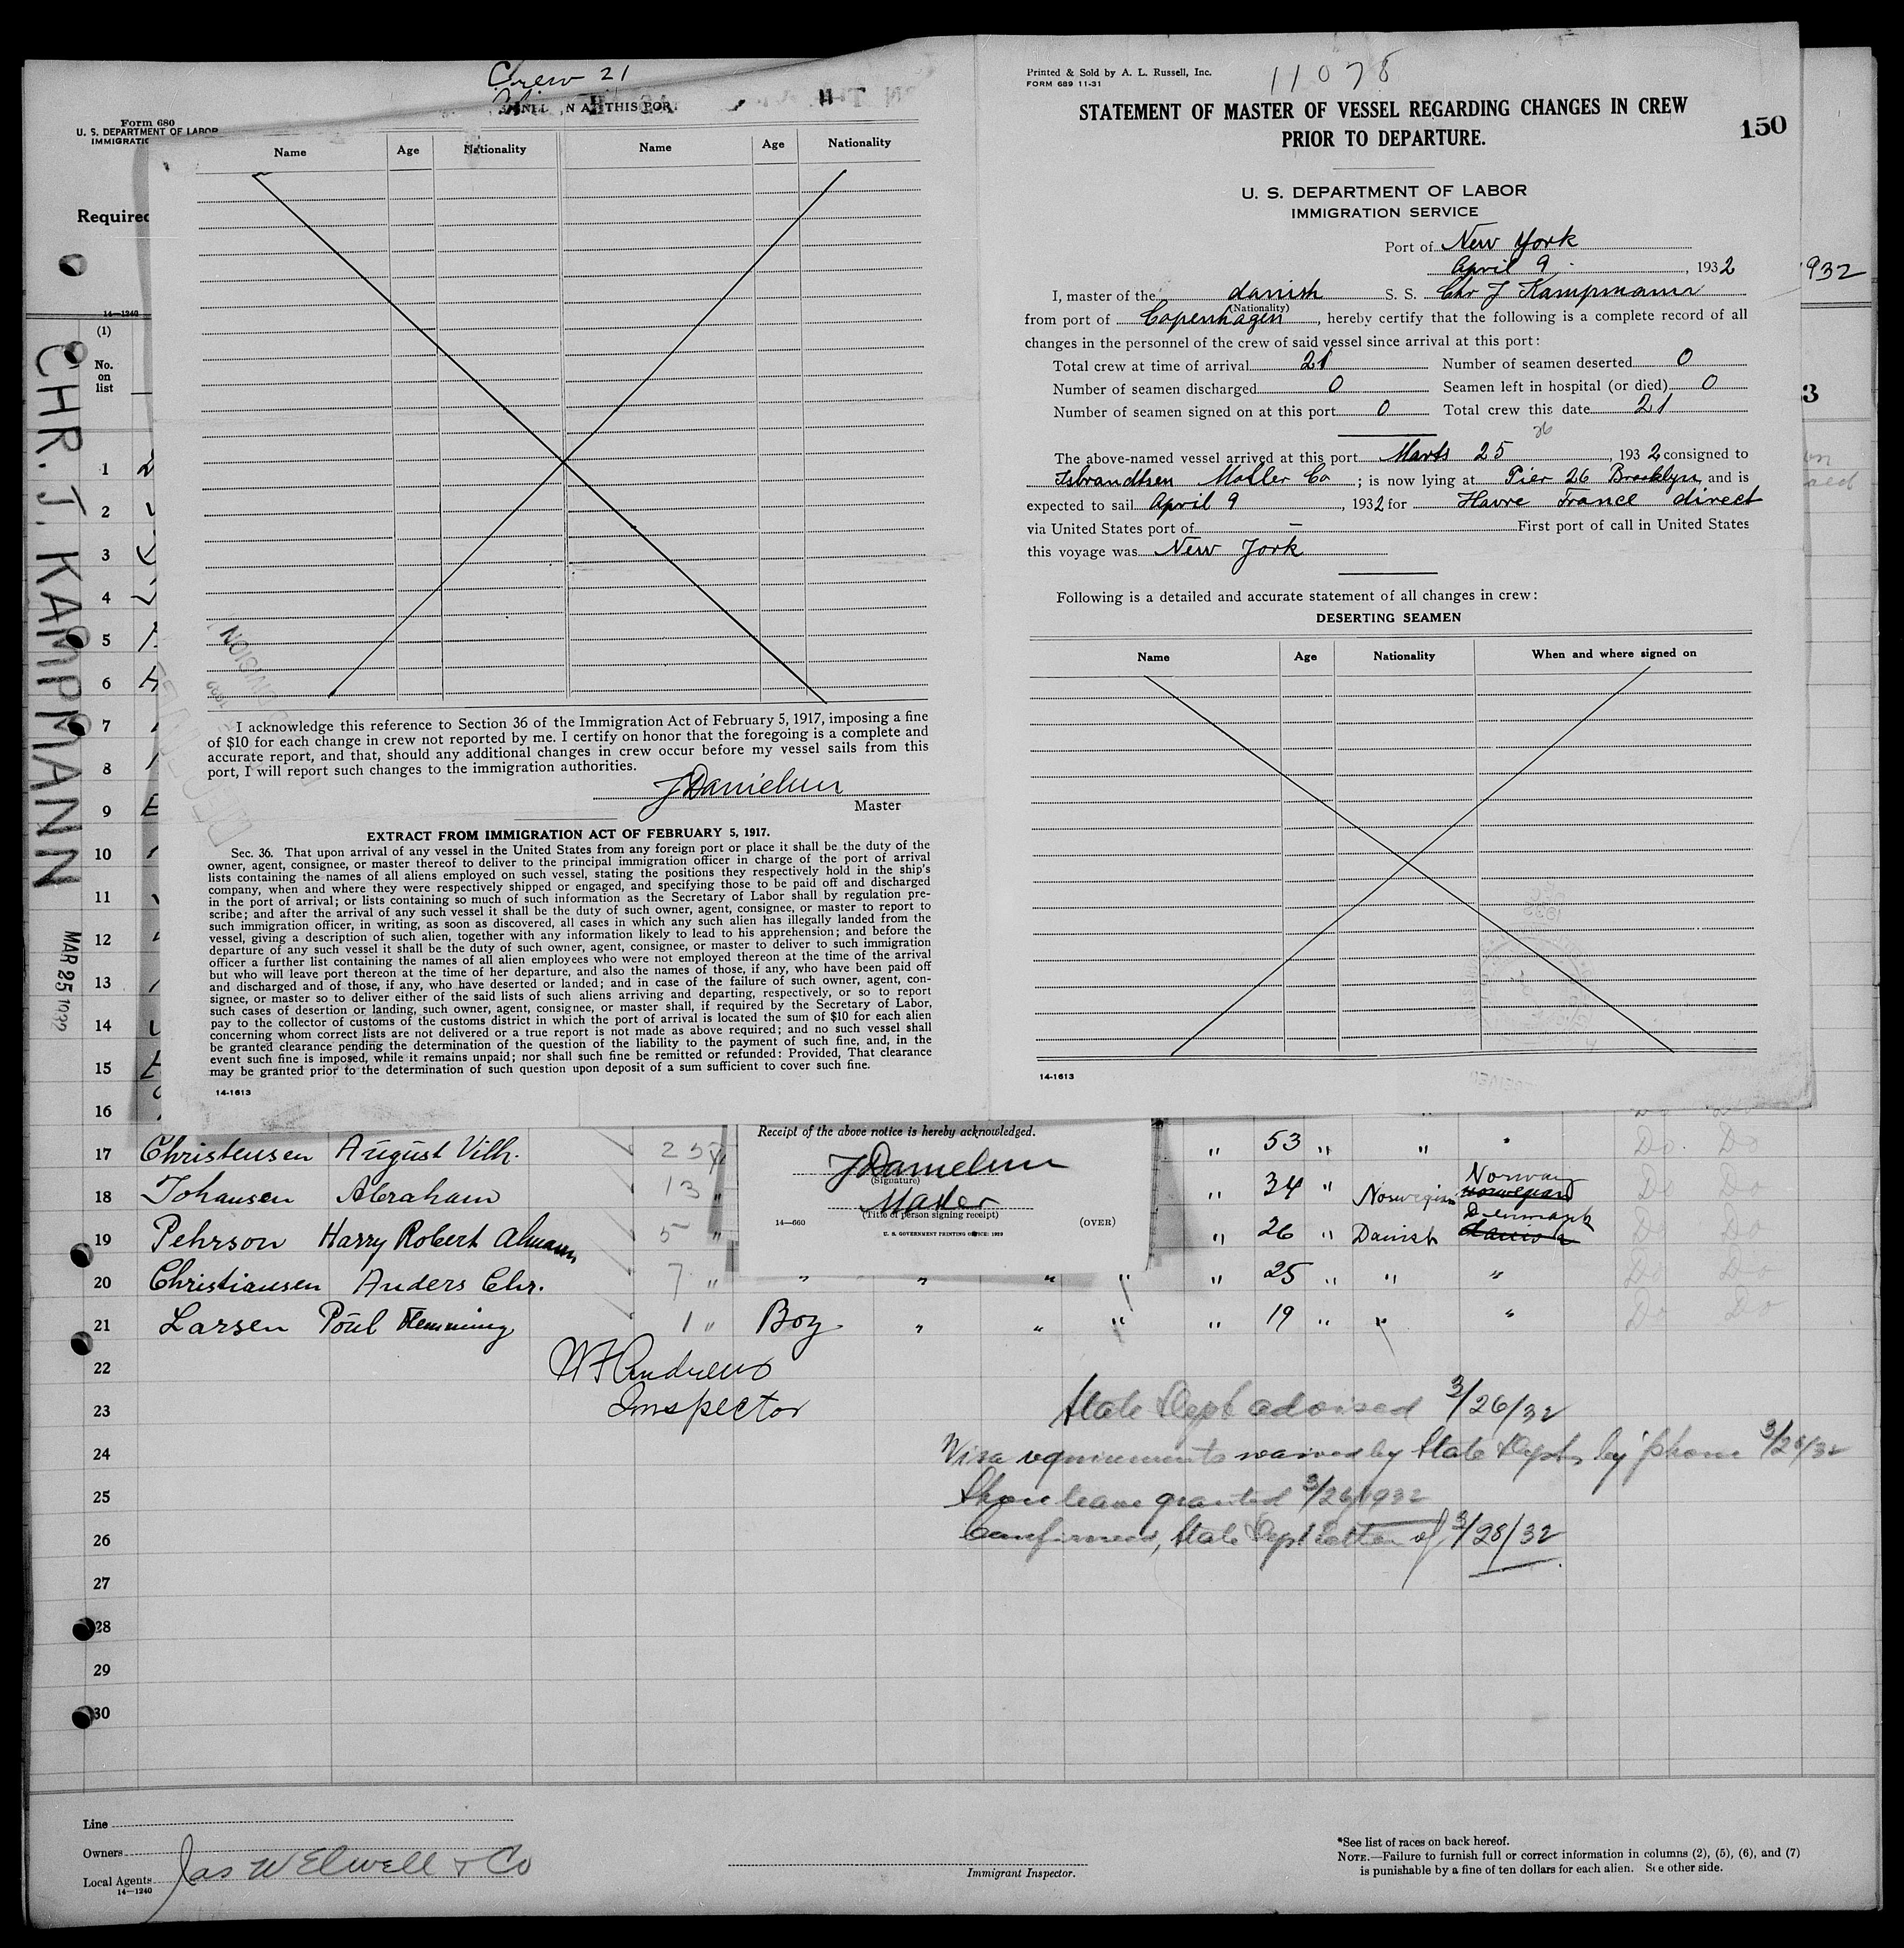 Crew 21
Form 680
U. S. DEPARTMENT OF LABOR
Required
14—1240
(1)
No.
on
list
CHR. J. KAMPMANN
MAR 25 1932
Name Age Nationality Name Age Nationality
I acknowledge this reference to Section 36 of the Immigration Act of February 5, 1917, imposing a fine
of $10 for each change in crew not reported by me. I certify on honor that the foregoing is a complete and
accurate report, and that, should any additional changes in crew occur before my vessel sails from this
port, I will report such changes to the immigration authorities.
Master
EXTRACT FROM IMMIGRATION ACT OF FEBRUARY 5, 1917.
Sec. 36. That upon arrival of any vessel in the United States from any foreign port or place it shall be the duty of the
owner, agent, consignee, or master thereof to deliver to the principal immigration officer in charge of the port of arrival
lists containing the names of all aliens employed on such vessel, stating the positions they respectively hold in the ship's
company, when and where they were respectively shipped or engaged, and specifying those to be paid off and discharged
in the port of arrival; or lists containing so much of such information as the Secretary of Labor shall by regulation pre-
scribe; and after the arrival of any such vessel it shall be the duty of such owner, agent, consignee, or master to report to
such immigration officer, in writing, as soon as discovered, all cases in which any such alien has illegally landed from the
vessel, giving a description of such alien, together with any information likely to lead to his apprehension; and before the
departure of any such vessel it shall be the duty of such owner, agent, consignee, or master to deliver to such immigration
officer a further list containing the names of all alien employees who were not employed thereon at the time of the arrival
but who will leave port thereon at the time of her departure, and also the names of those, if any, who have been paid off
and discharged and of those, if any, who have deserted or landed; and in case of the failure of such owner, agent, con-
signee, or master so to deliver either of the said lists of such aliens arriving and departing, respectively, or so to report
such cases of desertion or landing, such owner, agent, consignee, or master shall, if required by the Secretary of Labor,
pay to the collector of customs of the customs district in which the port of arrival is located the sum of $10 for each alien
concerning whom correct lists are not delivered or a true report is not made as above required; and no such vessel shall
be granted clearance pending the determination of the question of the liability to the payment of such fine, and, in the
event such fine is imposed, while it remains unpaid; nor shall such fine be remitted or refunded: Provided, That clearance
may be granted prior to the determination of such question upon deposit of a sum sufficient to cover such fine.
14-1613
Printed & Sold by A. L. Russell, Inc.
FORM 689 11-31
11078
STATEMENT OF MASTER OF VESSEL REGARDING CHANGES IN CREW
PRIOR TO DEPARTURE.
150
U. S. DEPARTMENT OF LABOR
IMMIGRATION SERVICE
Port of New York
April 9, 1932
I, master of the danish S. S. Chr J Kampmann
(Nationality)
from port of Copenhagen, hereby certify that the following is a complete record of all
changes in the personnel of the crew of said vessel since arrival at this port:
Total crew at time of arrival 21 Number of seamen deserted 0
Number of seamen discharged 0 Seamen left in hospital (or died) 0
Number of seamen signed on at this port 0 Total crew this date 21
26
The above-named vessel arrived at this port Marts 25, 1932 consigned to
Isbrandtsen Moller Co; is now lying at Pier 26 Brooklyn and is
expected to sail April 9, 1932 for Havre France direct
via United States port of — First port of call in United States
this voyage was New York
Following is a detailed and accurate statement of all changes in crew:
DESERTING SEAMEN
Name Age Nationality When and where signed on
14-1613
1932
3
1
2
3
4
5
6
7
8
9
10
11
12
13
14
15
16
Receipt of the above notice is hereby acknowledged.
(Signature)
Master
(Title of person signing receipt)
14—660 (OVER)
U. S. GOVERNMENT PRINTING OFFICE: 1929
17 Christensen August Vilh. 25 " 53 " " " Do Do
18 Johansen Abraham 13 " " 34 " Norwegian norwegian Norway Do Do
19 Pehrson Harry Robert Almann 5 " " 26 " Danish danish Denmark Do Do
20 Christiansen Anders Chr. 7 " " " " " " 25 " " " Do Do
21 Larsen Poul Flemming 1 " Boy " " " " 19 " " " Do Do
22 W F Andrews
23 Inspector State Dept advised 3/26/32
24 Visa requirements waived by State Dept. by phone 3/26/32
25 Shore leave granted 3/26/1932
26 Confirmed, State Dept letter of 3/28/32
27
28
29
30
Line
Owners
Local Agents Jas W Elwell & Co
14—1240
Immigrant Inspector.
*See list of races on back hereof.
NOTE.—Failure to furnish full or correct information in columns (2), (5), (6), and (7)
is punishable by a fine of ten dollars for each alien. See other side.